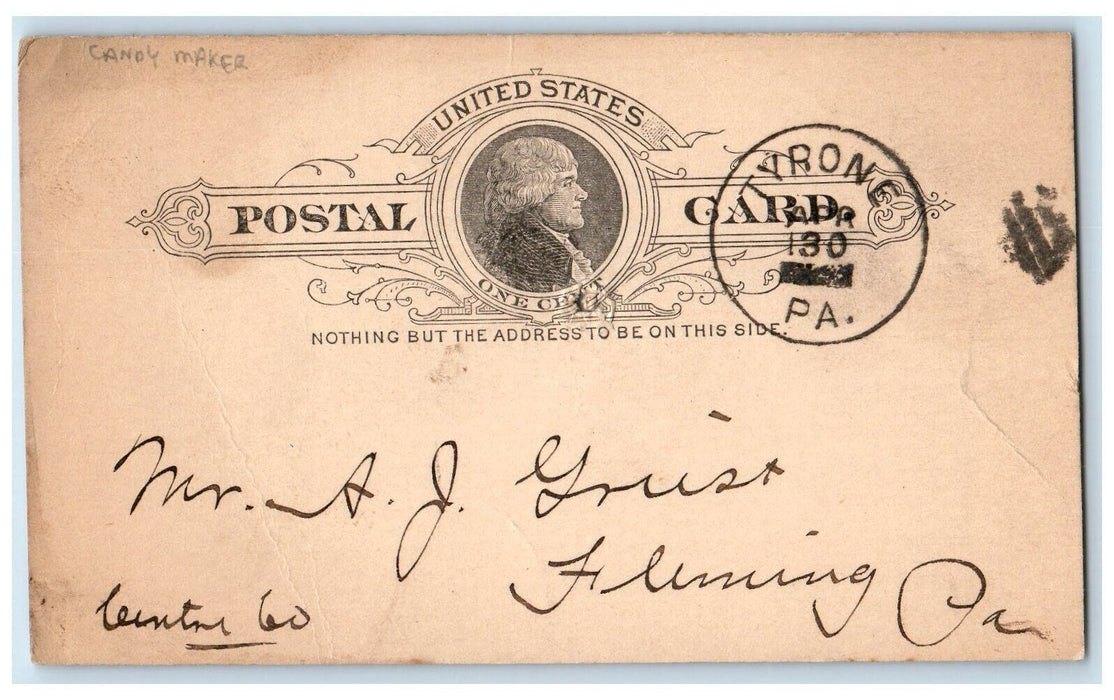 CANDY MAKER
UNITED STATES
POSTAL CARD
ONE CENT
NOTHING BUT THE ADDRESS TO BE ON THIS SIDE.
TYRONE
APR
30
PA.
Mr. A. J. Griest
Fleming Pa
Centre Co